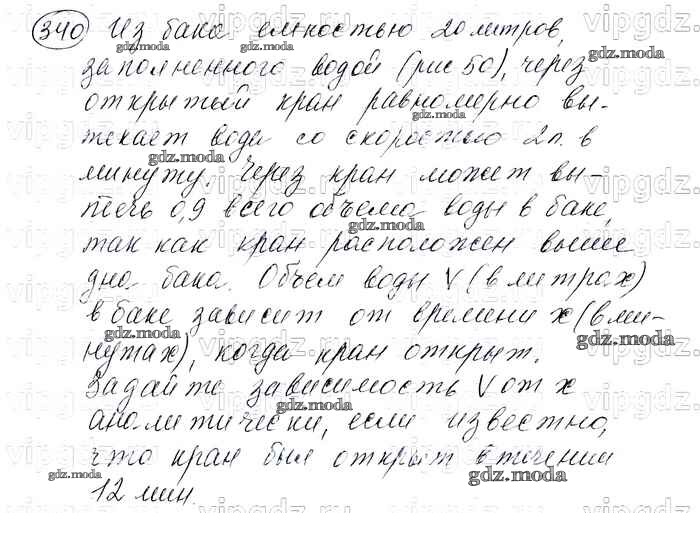 340 Из бака емкостью 20 литров,
заполненного водой (рис 50), через
открытый кран равномерно вы-
текает вода со скоростью 2л. в
минуту. Через кран может вы-
течь 0,9 всего объема воды в баке,
так как кран расположен выше
дна бака. Объем воды V (в литрах)
в баке зависит от времени x (в ми-
нутах), когда кран открыт.
Задайте зависимость V от x
аналитически, если известно,
что кран был открыт в течении
12 мин.